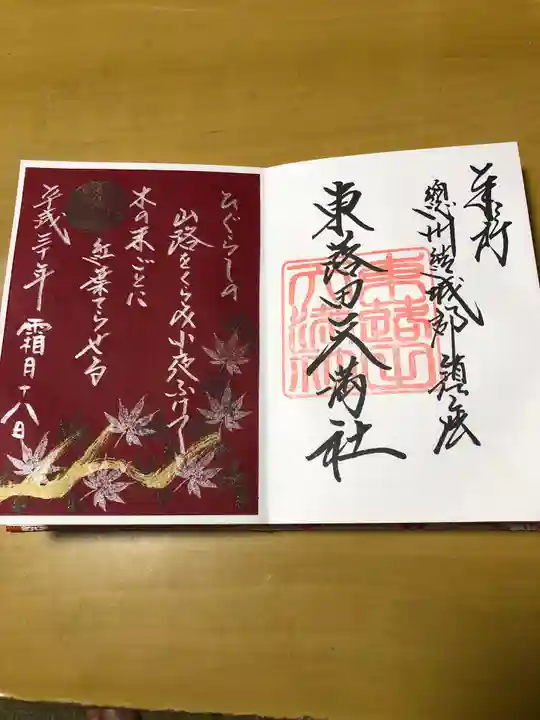 奉拝
總州結城郡鎮座
東蕗田天満社
ひぐらしの
山路をくらみ小夜ふけて
木の末ごとに
紅葉てらせる
平成三十年
霜月十八日